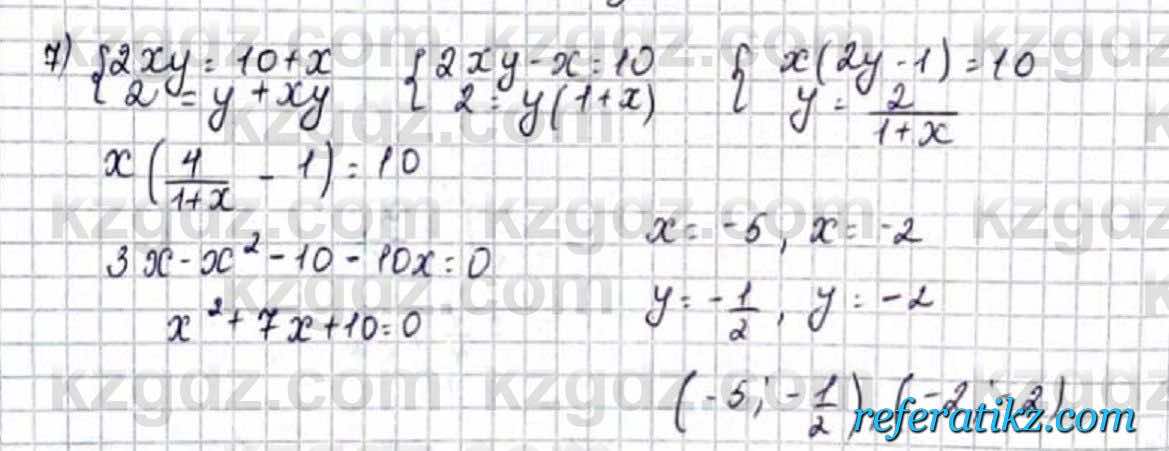 7) {2xy = 10+x {2xy-x=10 { x(2y-1)=10
2 = y+xy 2 = y(1+x) y = 2/(1+x)
x(4/(1+x) - 1) = 10
3x-x²-10-10x=0
x²+7x+10=0
x = -5, x = -2
y = -1/2, y = -2
(-5; -1/2) (-2; -2)
referatikz.com
kzgdz.com kzgdz.com kzgdz.com
kzgdz.com kzgdz.com kzgdz.com
kzgdz.com kzgdz.com kzgdz.com